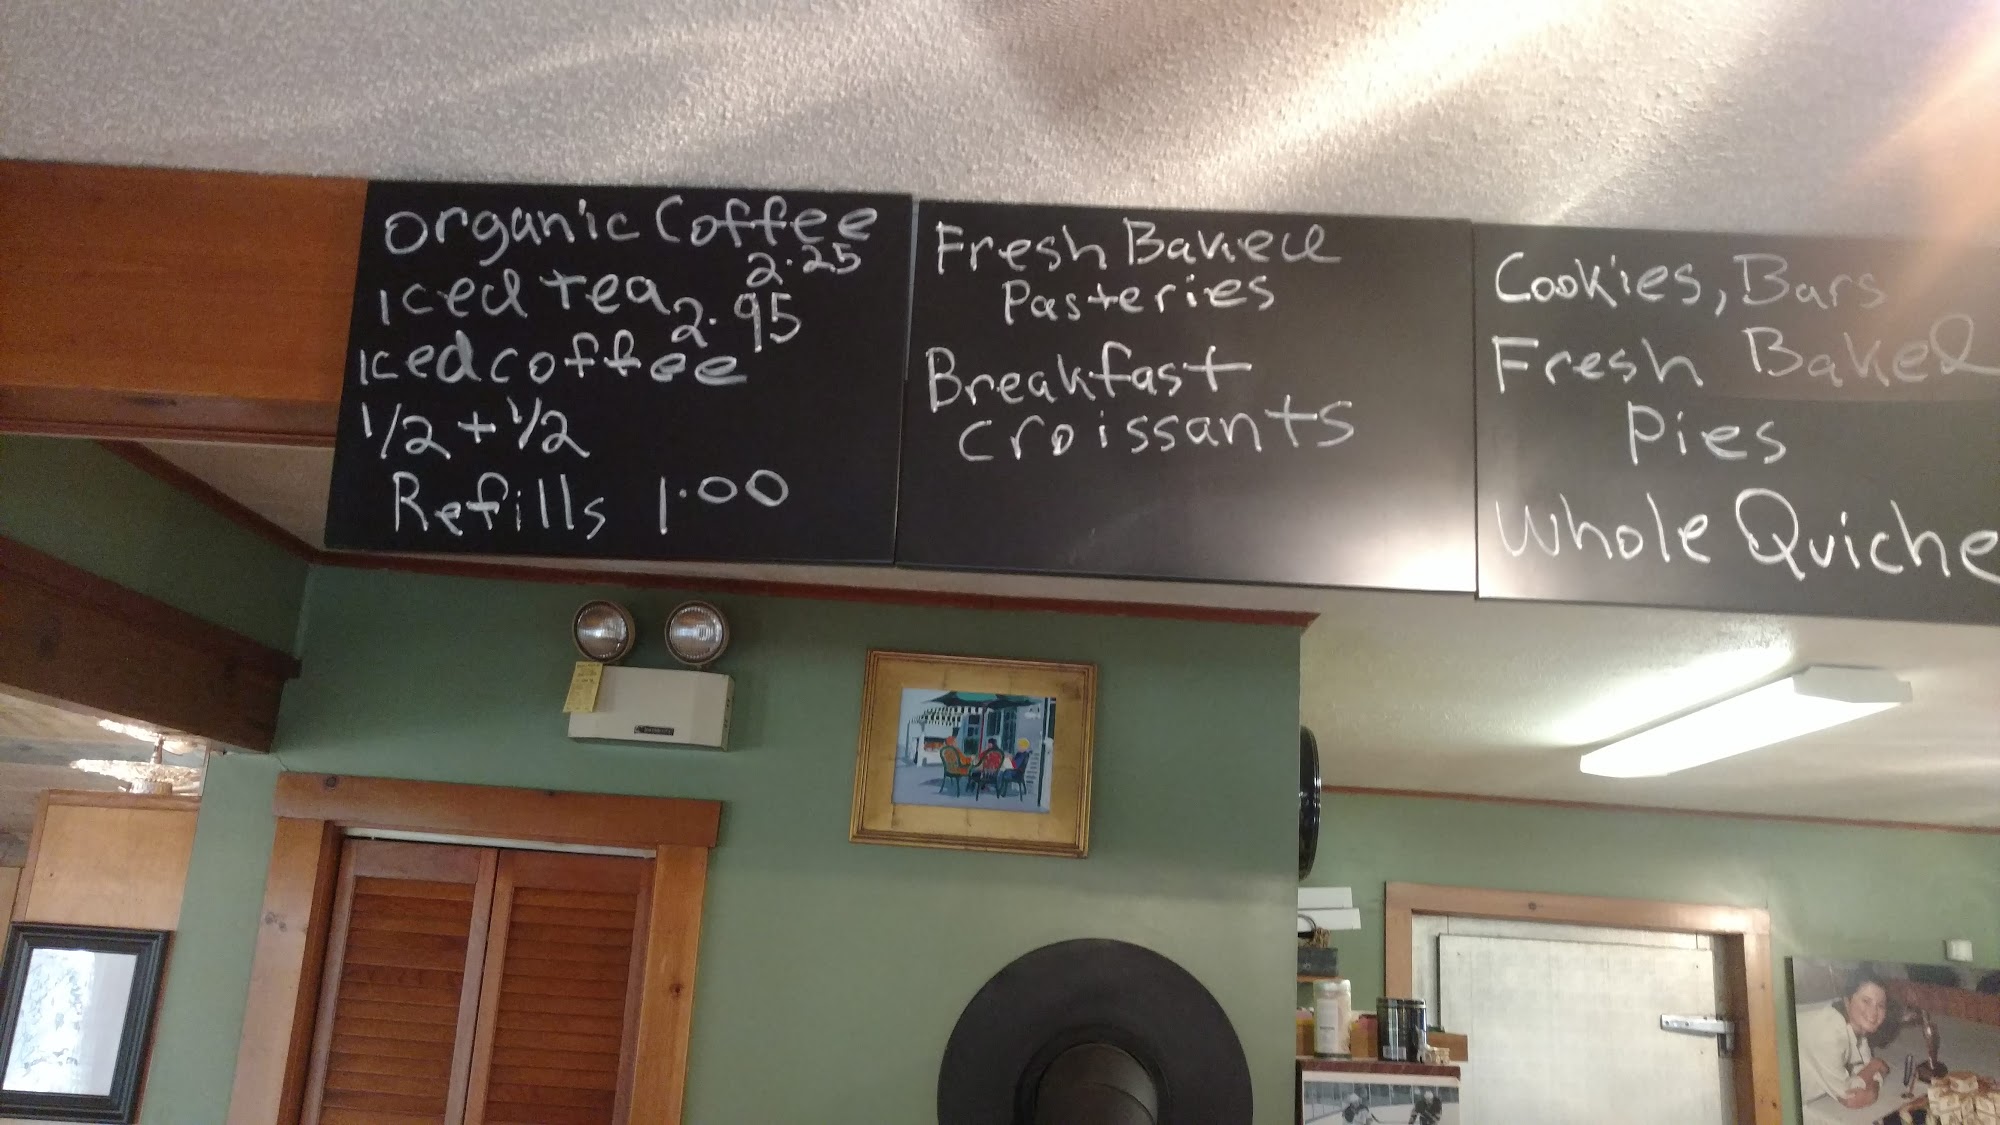 Organic Coffee
2.25
Iced Tea
2.95
Iced coffee
1/2 + 1/2
Refills 1.00
Fresh Baked
Pasteries
Breakfast
croissants
Cookies, Bars
Fresh Baked
Pies
Whole Quiche